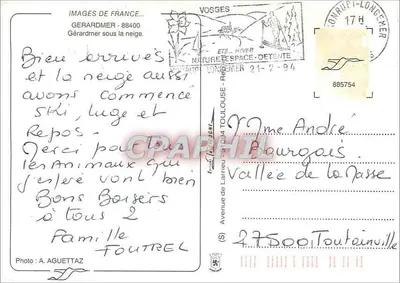 IMAGES DE FRANCE...
GERARDMER - 88400
Gérardmer sous la neige.
Bien arrivés
et la neige aussi
avons commencé
ski, luge et
Repos.
Merci pour tous
les Animaux qui
j'espère vont bien
Bons Baisers
à tous 2
Famille
FOUTREL
Photo : A. AGUETTAZ
VOSGES
ETE... HIVER
NATURE-ESPACE-DETENTE
21-2-94
17H
LONGEMER
885754
CPAPHIL
Avenue de Larrieu
TOULOUSE
(S)
Mme André
Bourgois
Vallée de la Masse
27500 Toutainville